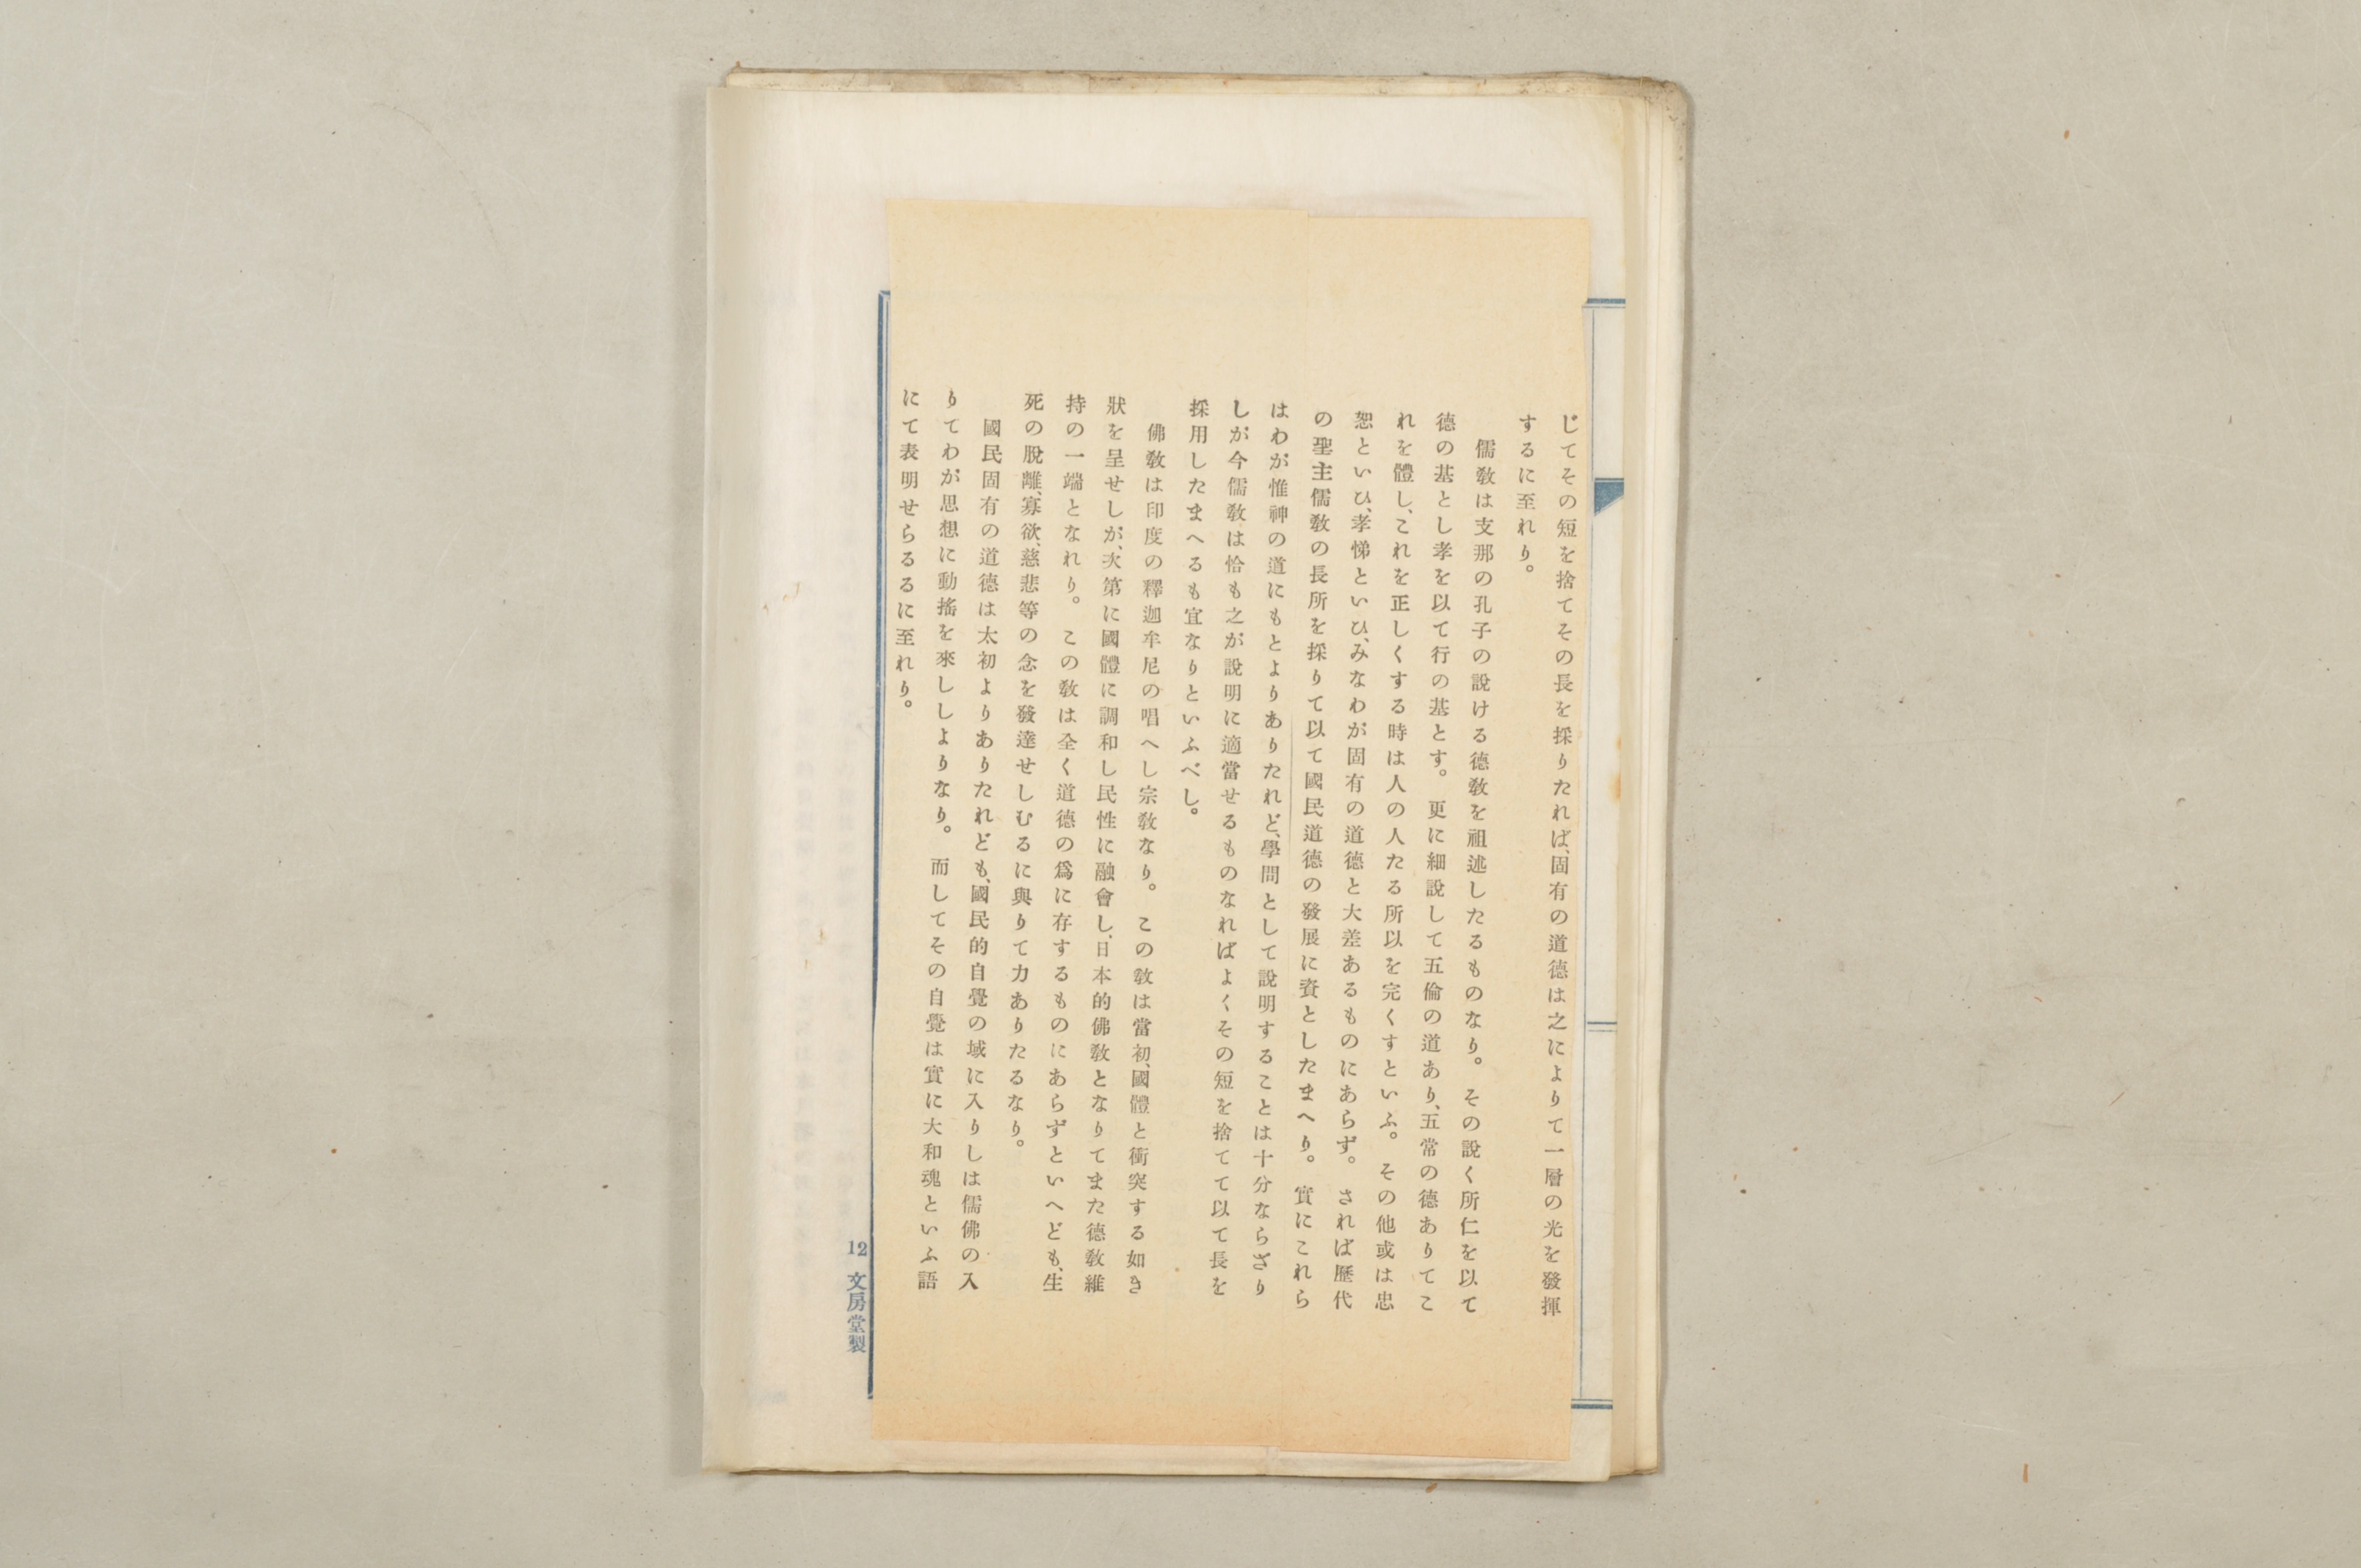 じてその短を捨てその長を採りたれば、固有の道德は之によりて一層の光を發揮
するに至れり。
儒敎は支那の孔子の說ける德敎を祖述したるものなり。その說く所仁を以て
德の基とし孝を以て行の基とす。更に細說して五倫の道あり、五常の德ありてこ
れを體し、これを正しくする時は人の人たる所以を完くすといふ。その他或は忠
恕といひ、孝悌といひ、みなわが固有の道德と大差あるものにあらず。されば歷代
の聖主儒敎の長所を採りて以て國民道德の發展に資としたまへり。實にこれら
はわが惟神の道にもとよりありたれど、學問として說明することは十分ならざり
しが今儒敎は恰も之が說明に適當せるものなればよくその短を捨てて以て長を
採用したまへるも宜なりといふべし。
佛敎は印度の釋迦牟尼の唱へし宗敎なり。この敎は當初、國體と衝突する如き
狀を呈せしが、次第に國體に調和し民性に融會し、日本的佛敎となりてまた德敎維
持の一端となれり。この敎は全く道德の爲に存するものにあらずといへども、生
死の脫離、寡欲、慈悲等の念を發達せしむるに與りて力ありたるなり。
國民固有の道德は太初よりありたれども、國民的自覺の域に入りしは儒佛の入
りてわが思想に動搖を來ししよりなり。而してその自覺は實に大和魂といふ語
にて表明せらるるに至れり。
12 文房堂製